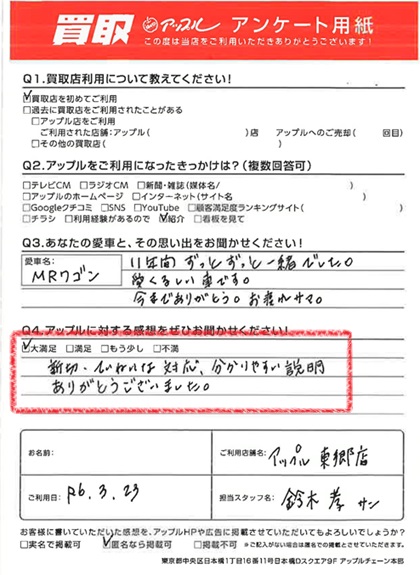 買取 アップル アンケート用紙
この度は当店をご利用いただきありがとうございます!
Q1.買取店利用について教えてください!
☑買取店を初めてご利用
□過去に買取店をご利用されたことがある
□アップル店をご利用
ご利用された店舗:アップル( )店 アップルへのご売却( 回目)
□その他の買取店( )
Q2.アップルをご利用になったきっかけは?(複数回答可)
□テレビCM □ラジオCM □新聞・雑誌(媒体名/ )
□アップルのホームページ □インターネット(サイト名 )
□Googleクチコミ □SNS □YouTube □顧客満足度ランキングサイト( )
□チラシ □利用経験があるので ☑紹介 □看板を見て
Q3.あなたの愛車と、その思い出をお聞かせください!
愛車名:
MRワゴン
11年間 ずっとずっと一緒でした。
愛くるしい車です。
今までありがとう。お疲れサマ。
Q4.アップルに対する感想をぜひお聞かせください!
☑大満足 □満足 □もう少し □不満
親切・ていねいな対応、分かりやすい説明
ありがとうございました。
お名前:
ご利用店舗名:
アップル 東郷店
ご利用日:
R6.3.23
担当スタッフ名:
鈴木孝 サン
お客様に書いていただいた感想を、アップルHPや広告に掲載させていただいてもよろしいでしょうか?
□実名で掲載可 ☑匿名なら掲載可 □掲載不可 ※ご記入がない場合は匿名での掲載とさせていただきます。
東京都中央区日本橋1丁目16番11号日本橋Dスクエア9F アップルチェーン本部